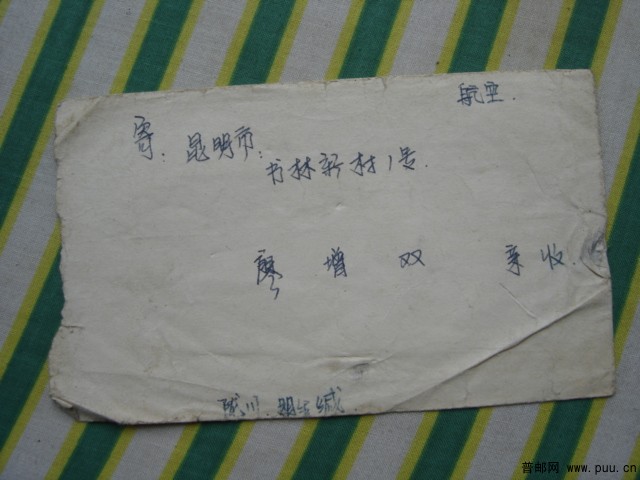 航空.
寄: 昆明市:
书林新村1号.
廖增双 亲收.
陇川. 缄.
普邮网 www.puu.cn